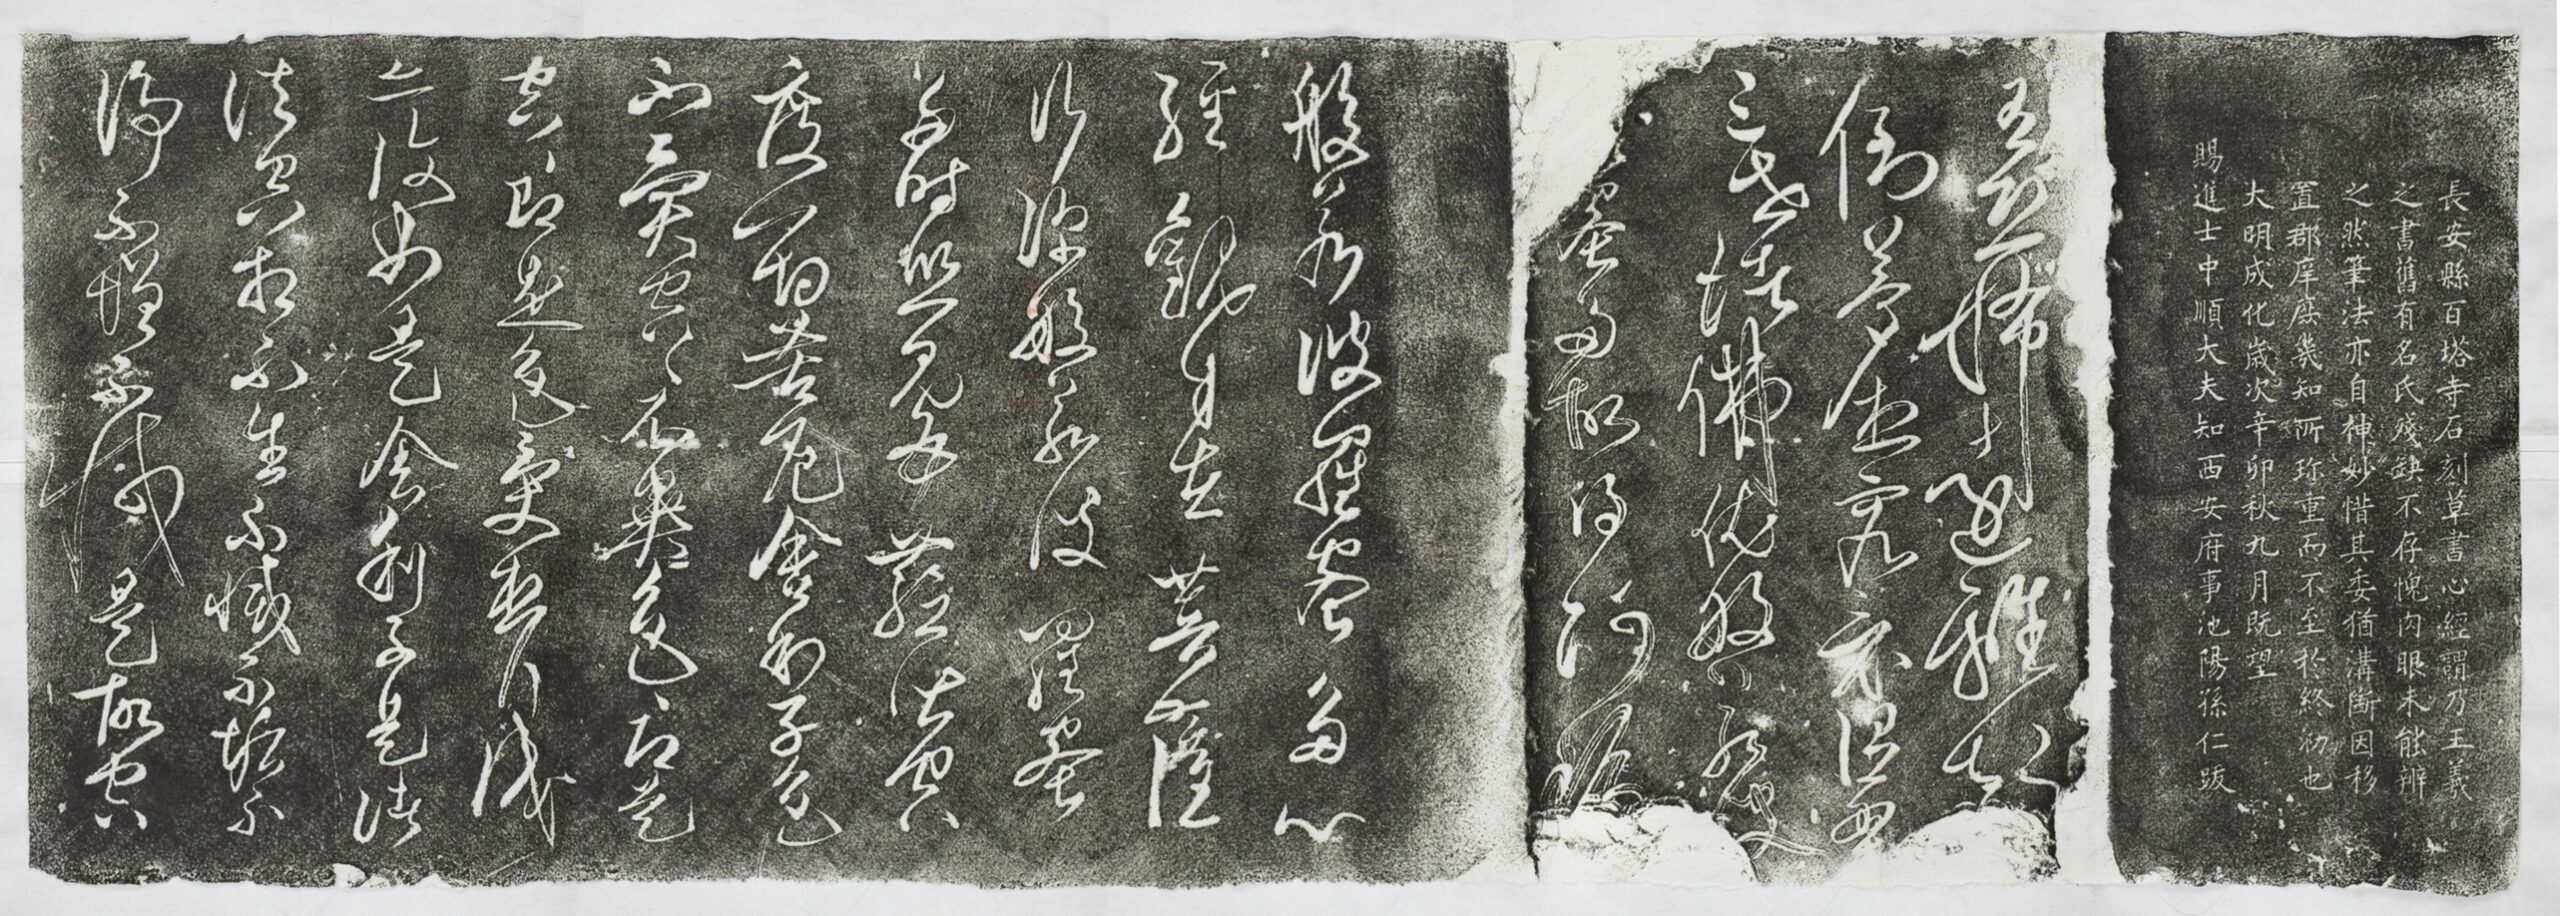 長安縣百塔寺石刻草書心經謂乃王羲
之書舊有名氏殘缺不存愧肉眼未能辨
之然筆法亦自神妙惜其委猶溝斷因移
置郡庠庶幾知所珍重而不至於終泐也
大明成化歲次辛卯秋九月既望
賜進士中順大夫知西安府事池陽孫仁跋
有恐怖遠離顛
倒夢想究竟涅槃
三世諸佛依般若波
蜜多故得阿耨
般若波羅蜜多心
經觀自在菩薩
行深般若波羅蜜
多時照見五蘊皆空
度一切苦厄舍利子色
不異空〻不異色色即是
空即是色受想行識
亦復如是舍利子是諸
法空相不生不滅不垢不
淨不增不減是故空